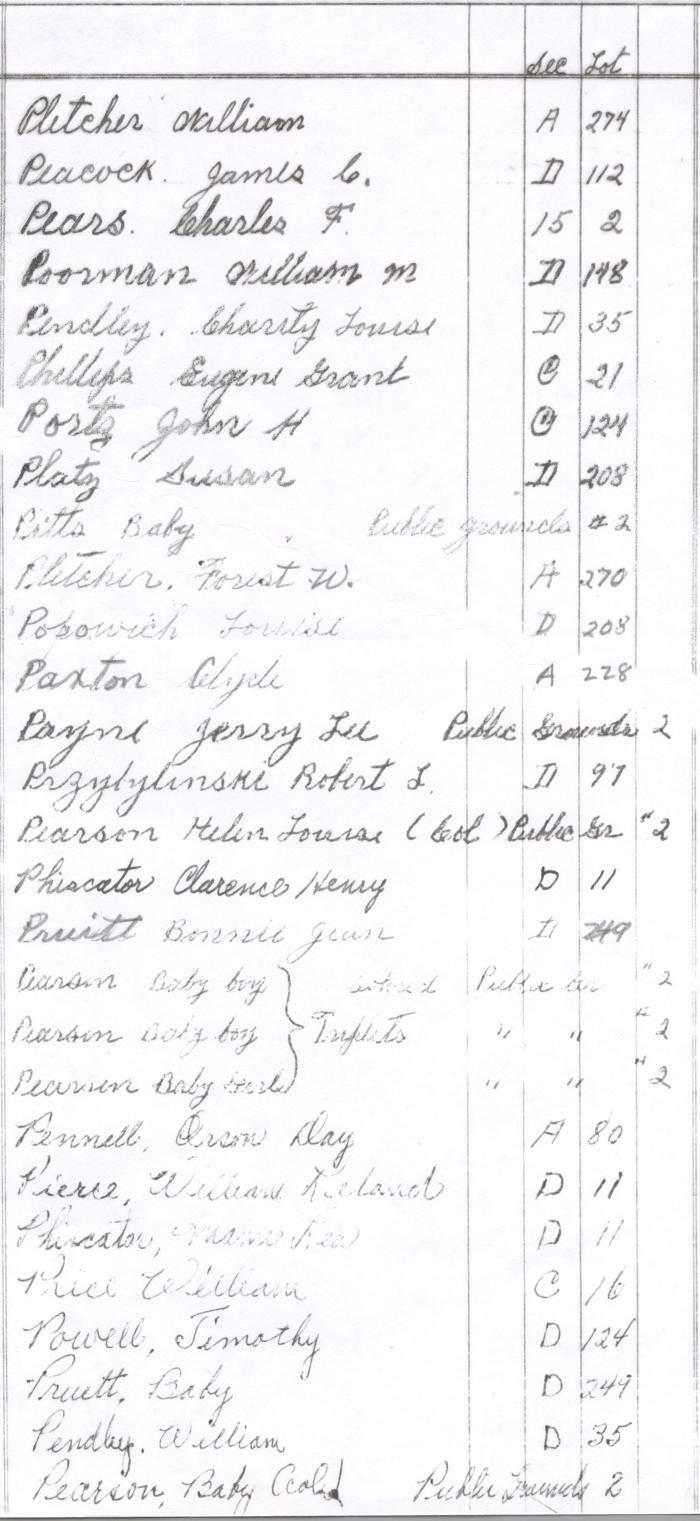 Sec Lot
Pletcher William A 274
Peacock. James C. D 112
Pears. Charles F. 15 2
Poorman William M D 148
Pendley. Charity Louise D 35
Phillips Eugene Grant C 21
Portz John H C 124
Platz Susan D 208
Pitts Baby Public grounds #2
Pletcher, Forest W. A 270
Popowich Louise D 208
Paxton Clyde A 228
Payne Jerry Lee Public Grounds 2
Przybylinski Robert L. D 97
Pearson Helen Louise (Col) Public Gr "2
Phiscator Clarence Henry D 11
Pruitt Bonnie Jean D 249
Pearson Baby boy Colored Public Gr "2
Pearson Baby boy Triplets " " "2
Pearson Baby Girl " " "2
Pennell, Orson Day A 80
Pierce, William Leland D 11
Phiscator, Mamie D 11
Price William C 16
Powell, Timothy D 124
Pruett, Baby D 249
Pendley. William D 35
Pearson, Baby (Col) Public Grounds 2